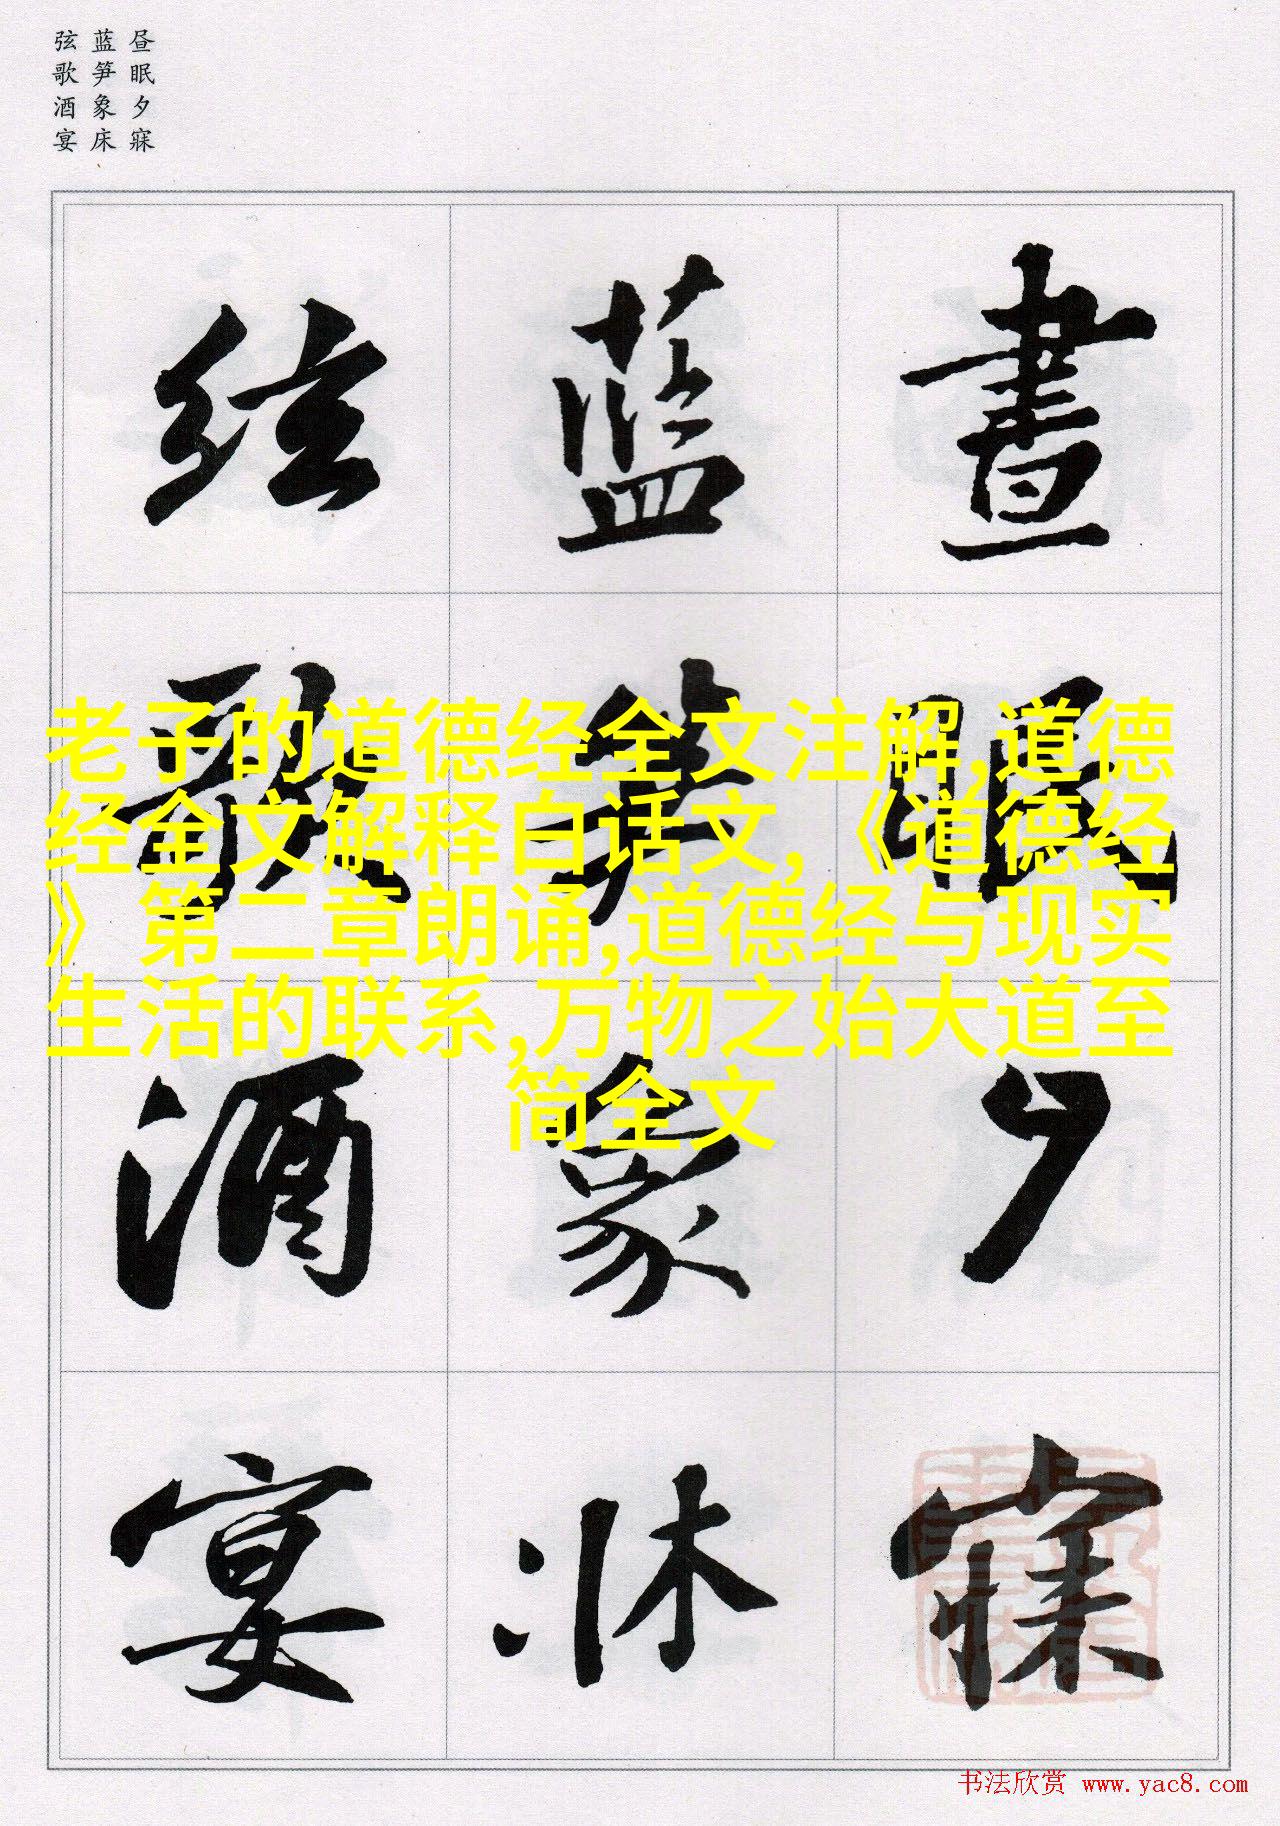 昼眠夕寐
蓝笋象床
弦歌酒宴
晝眠夕寐
藍笋象牀
絃歌酒宴
老子的道德经全文注解,道德
经全文解释白话文,《道德经
》第二章朗诵,道德经与现实
生活的联系,万物之始大道至
简全文
书法欣赏 www.yac8.com